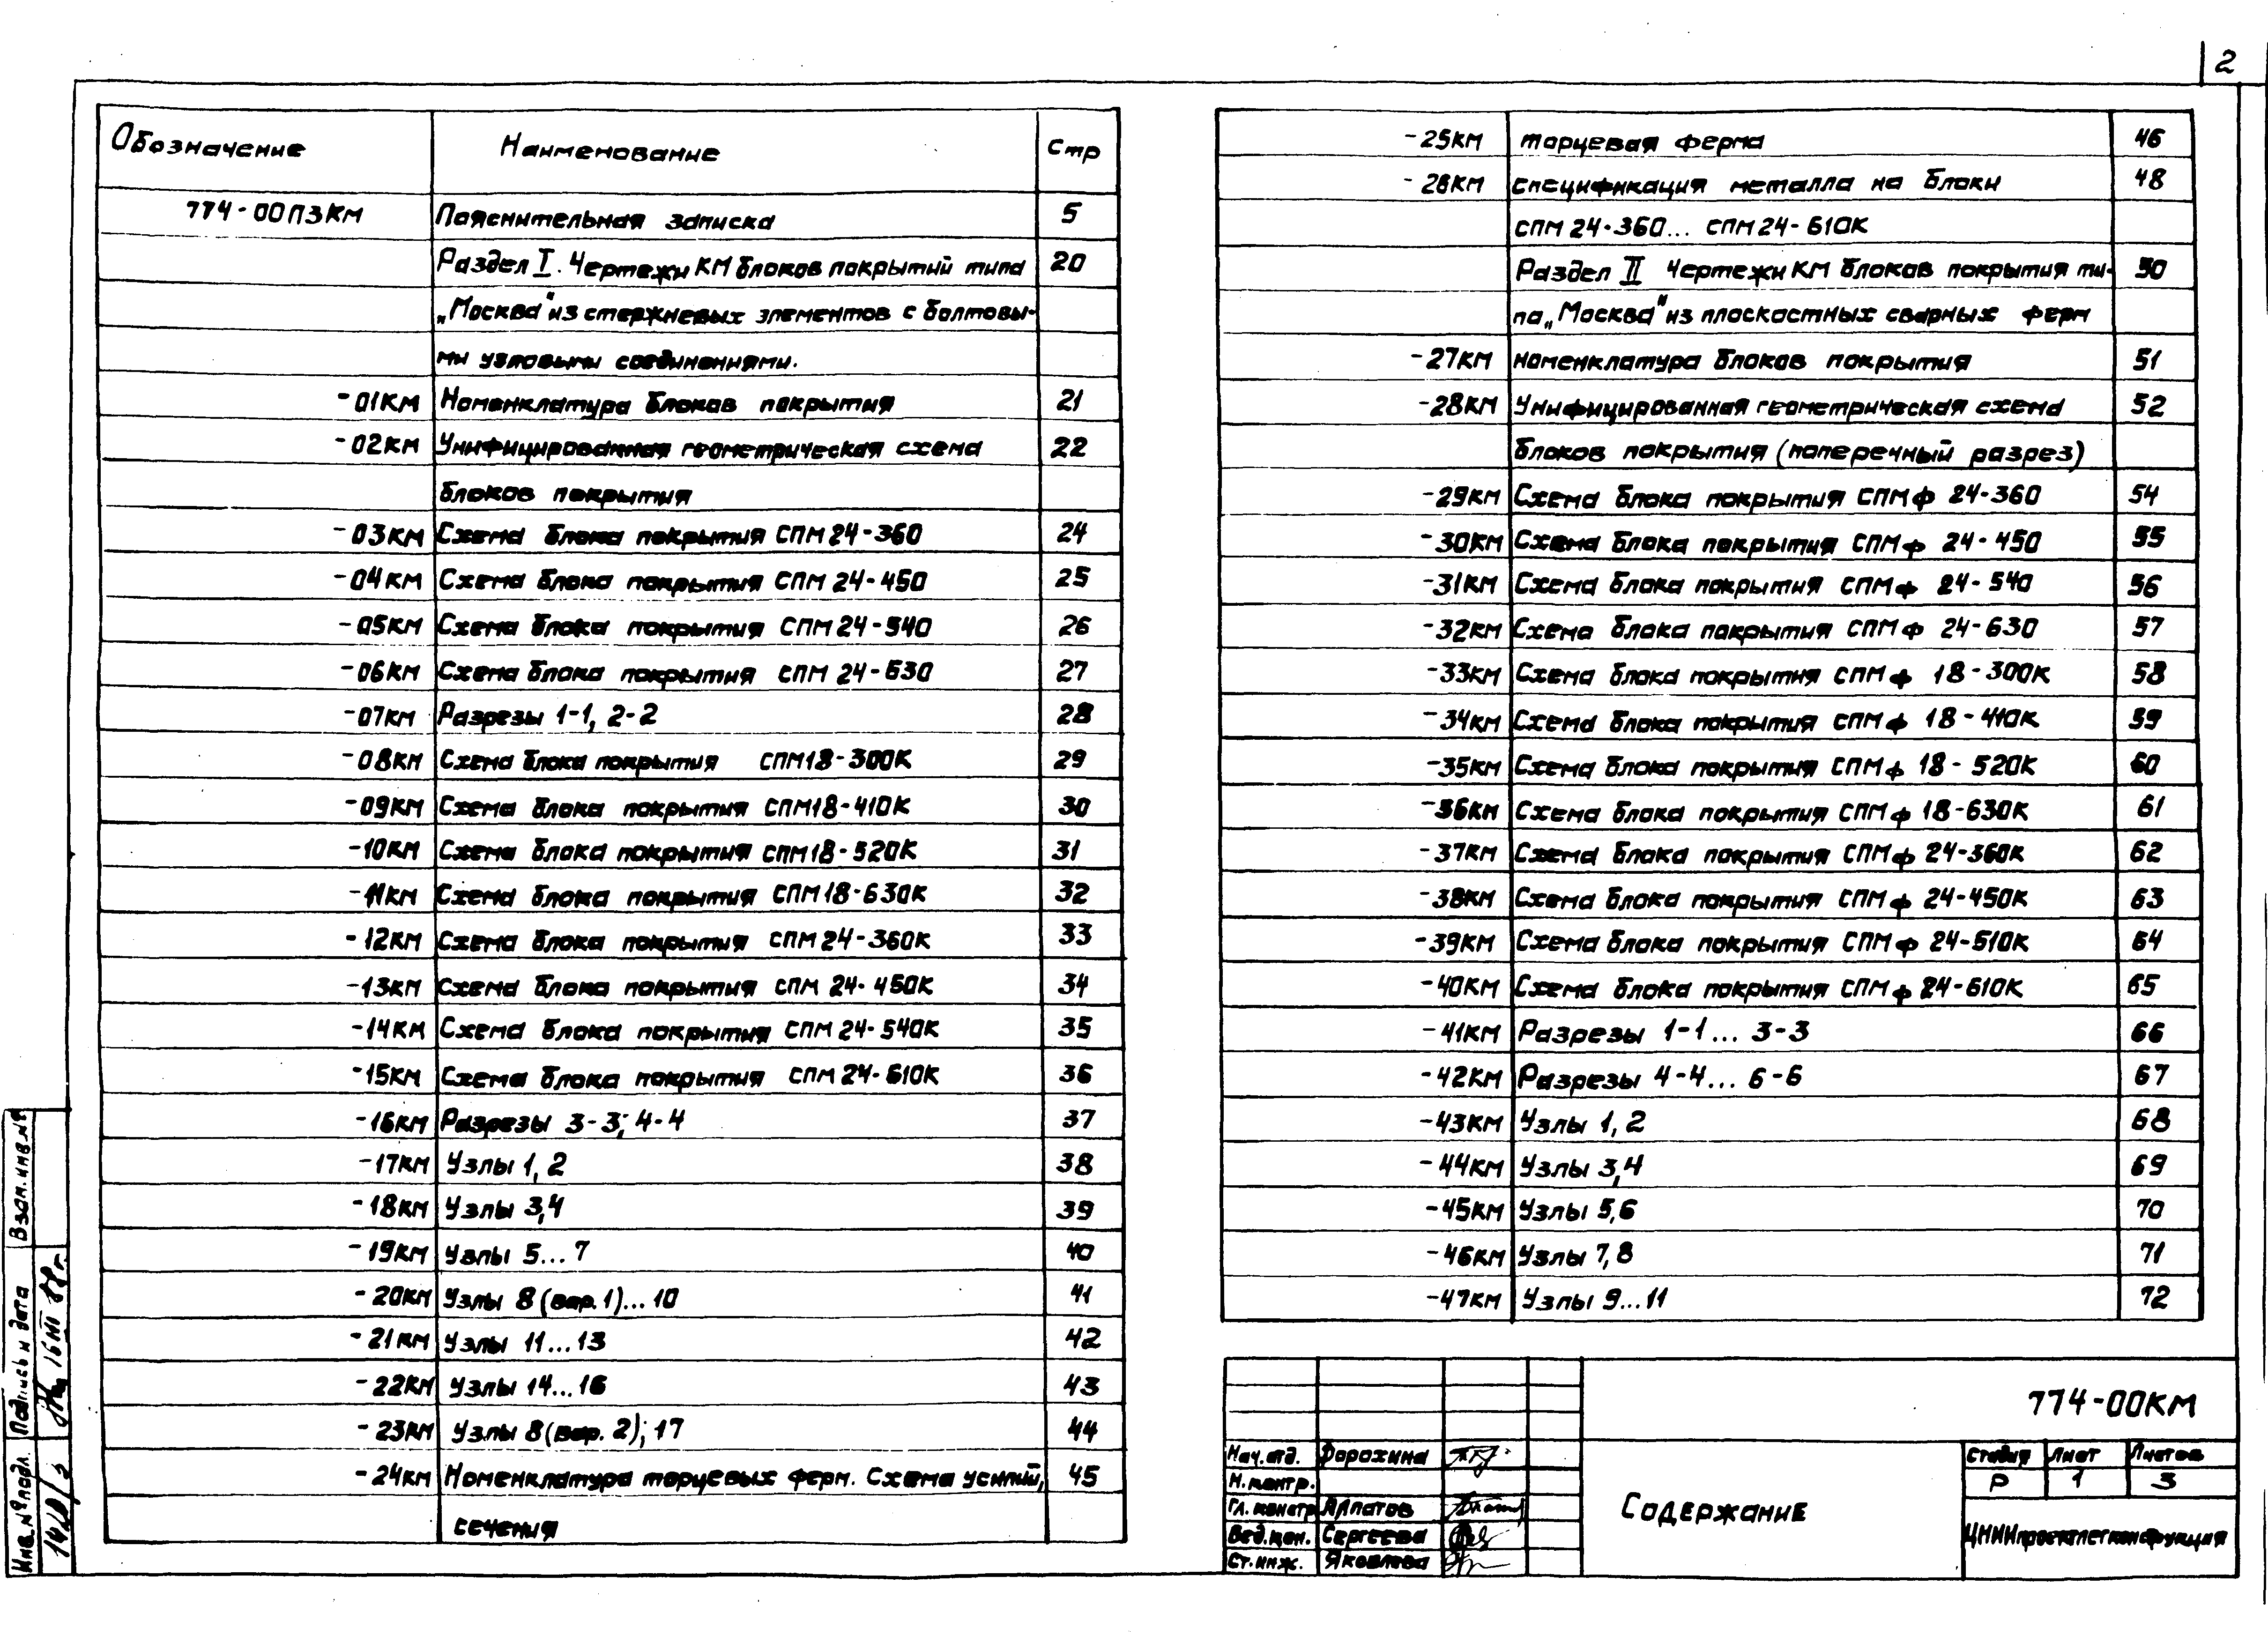 2
Обозначение Наименование Стр
774-00ПЗКМ Пояснительная записка 5
Раздел I. Чертежи КМ блоков покрытий типа 20
„Москва" из стержневых элементов с болтовы-
ми узловыми соединениями.
-01КМ Номенклатура блоков покрытия 21
-02КМ Унифицированная геометрическая схема 22
блоков покрытия
-03КМ Схема блока покрытия СПМ 24-360 24
-04КМ Схема блока покрытия СПМ 24-450 25
-05КМ Схема блока покрытия СПМ 24-540 26
-06КМ Схема блока покрытия СПМ 24-630 27
-07КМ Разрезы 1-1, 2-2 28
-08КМ Схема блока покрытия СПМ18-300К 29
-09КМ Схема блока покрытия СПМ18-410К 30
-10КМ Схема блока покрытия СПМ18-520К 31
-11КМ Схема блока покрытия СПМ18-630К 32
-12КМ Схема блока покрытия СПМ 24-360К 33
-13КМ Схема блока покрытия СПМ 24-450К 34
-14КМ Схема блока покрытия СПМ 24-540К 35
-15КМ Схема блока покрытия СПМ 24-610К 36
-16КМ Разрезы 3-3; 4-4 37
-17КМ Узлы 1, 2 38
-18КМ Узлы 3,4 39
-19КМ Узлы 5...7 40
-20КМ Узлы 8 (вар. 1)...10 41
-21КМ Узлы 11...13 42
-22КМ Узлы 14...16 43
-23КМ Узлы 8 (вар. 2); 17 44
-24КМ Номенклатура торцевых ферм. Схема усилий, 45
сечения
-25КМ торцевая ферма 46
-26КМ спецификация металла на блоки 48
СПМ 24-360... СПМ 24-610К
Раздел II Чертежи КМ блоков покрытия ти- 50
па „Москва" из плоскостных сварных ферм
-27КМ номенклатура блоков покрытия 51
-28КМ Унифицированная геометрическая схема 52
блоков покрытия (поперечный разрез)
-29КМ Схема блока покрытия СПМф 24-360 54
-30КМ Схема блока покрытия СПМф 24-450 55
-31КМ Схема блока покрытия СПМф 24-540 56
-32КМ Схема блока покрытия СПМф 24-630 57
-33КМ Схема блока покрытия СПМф 18-300К 58
-34КМ Схема блока покрытия СПМф 18-410К 59
-35КМ Схема блока покрытия СПМф 18-520К 60
-36КМ Схема блока покрытия СПМф 18-630К 61
-37КМ Схема блока покрытия СПМф 24-360К 62
-38КМ Схема блока покрытия СПМф 24-450К 63
-39КМ Схема блока покрытия СПМф 24-510К 64
-40КМ Схема блока покрытия СПМф 24-610К 65
-41КМ Разрезы 1-1... 3-3 66
-42КМ Разрезы 4-4... 6-6 67
-43КМ Узлы 1, 2 68
-44КМ Узлы 3,4 69
-45КМ Узлы 5,6 70
-46КМ Узлы 7,8 71
-47КМ Узлы 9...11 72
774-00КМ
Нач.отд. Дорохина
Н.контр.
Гл. констр Арпатов
Вед.кон. Сергеева
Ст.инж. Яковлева
Содержание
Стадия Лист Листов
Р 1 3
ЦНИИпроектлегконструкция
Взам.инв.№
Подпись и дата
Инв.№ подл.